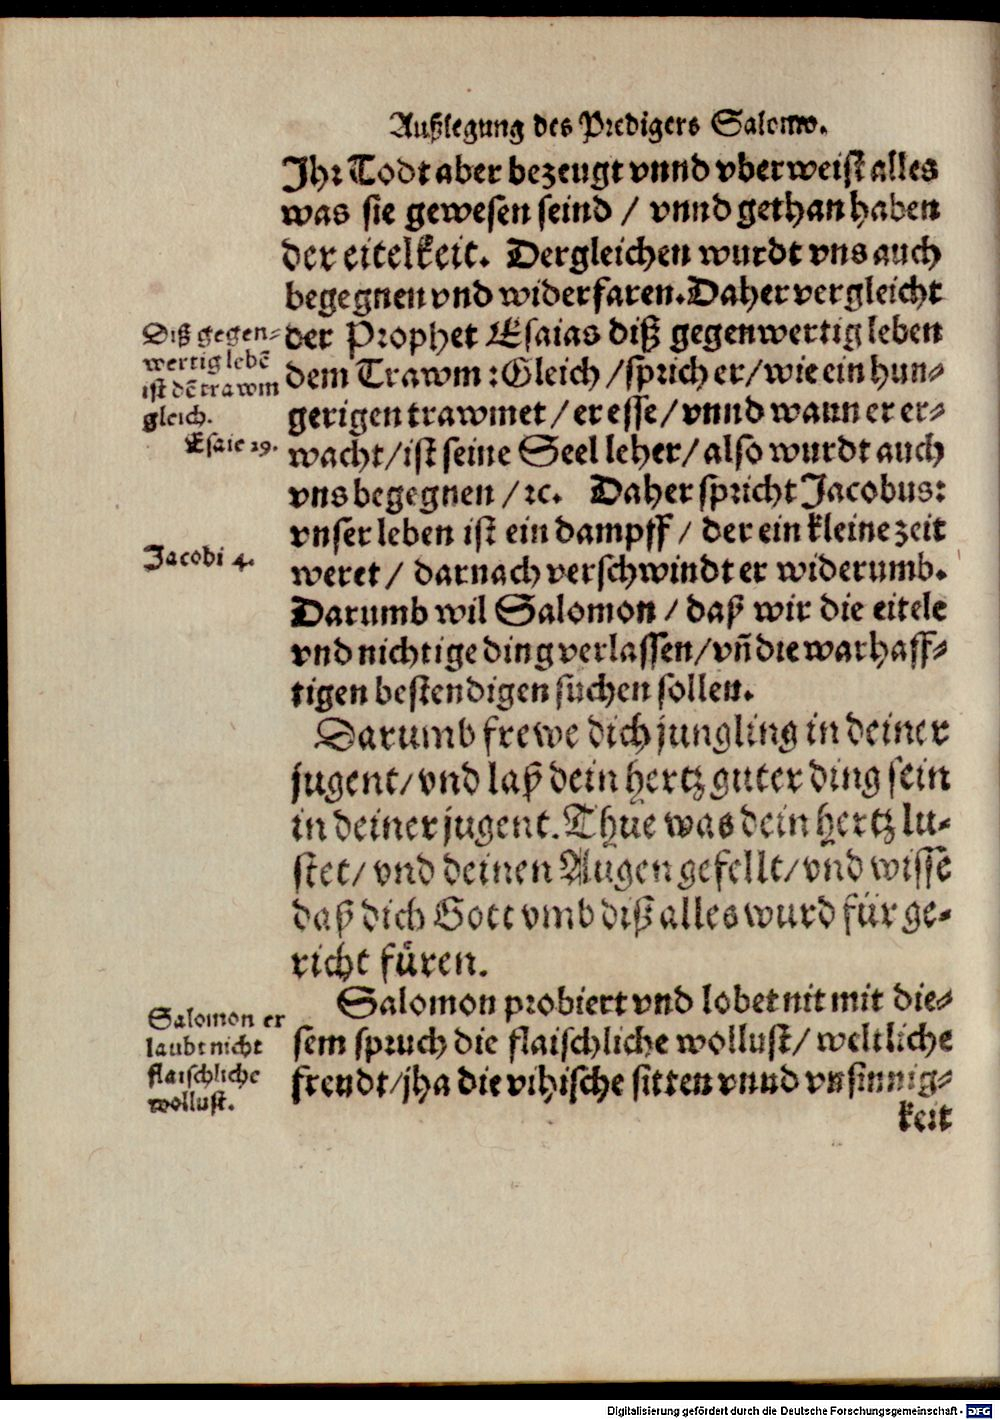 Außlegung des Predigers Salomo.
Ihr Todt aber bezeugt vnnd vberweist alles
was sie gewesen seind / vnnd gethan haben
der eitelkeit. Dergleichen wurdt vns auch
begegnen vnd widerfaren. Daher vergleicht
der Prophet Esaias diß gegenwertig leben
dem Trawm : Gleich / sprich er / wie ein hun-
gerigen trawmet / er esse / vnnd wann er er-
wacht / ist seine Seel leher / also wurdt auch
vns begegnen / ꝛc. Daher spricht Jacobus:
vnser leben ist ein dampff / der ein kleine zeit
weret / darnach verschwindt er widerumb.
Darumb wil Salomon / daß wir die eitele
vnd nichtige ding verlassen / vñ die warhaff-
tigen bestendigen suchen sollen.
Diß gegen-
wertig lebẽ
ist dẽ trawm
gleich.
Esaie 29.
Jacobi 4.
Darumb frewe dich jungling in deiner
jugent / vnd laß dein hertz guter ding sein
in deiner jugent. Thue was dein hertz lu-
stet / vnd deinen Augen gefellt / vnd wisse
daß dich Gott vmb diß alles wurd für ge-
richt füren.
Salomon probiert vnd lobet nit mit die-
sem spruch die flaischliche wollust / weltliche
freudt / jha die vihische sitten vnnd vnsinnig-
keit
Salomon er
laubt nicht
flaischliche
wollust.
Digitalisierung gefördert durch die Deutsche Forschungsgemeinschaft - DFG